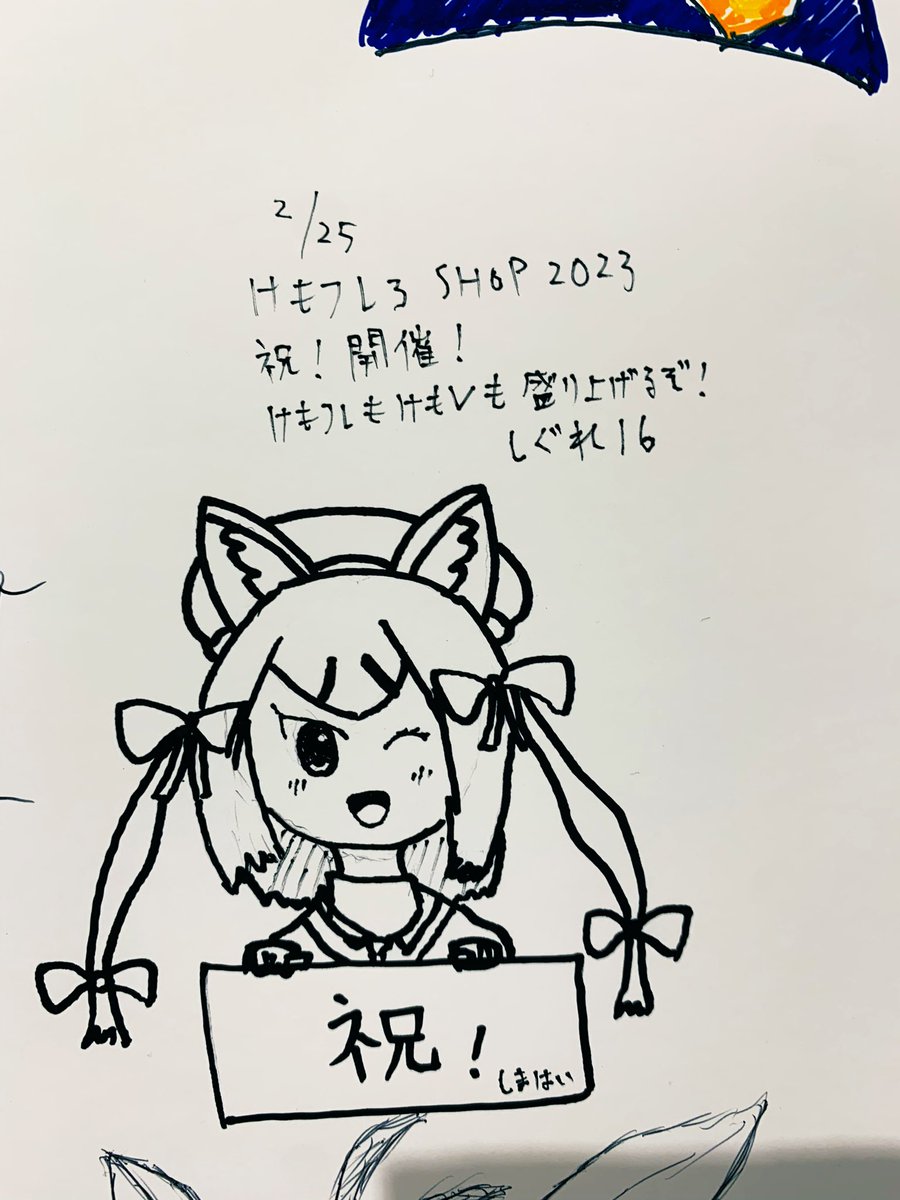 2/25
けもフレ3 SHOP 2023
祝！開催！
けもフレもけもVも盛り上げるぞ！
しぐれ16
祝！
しまはい